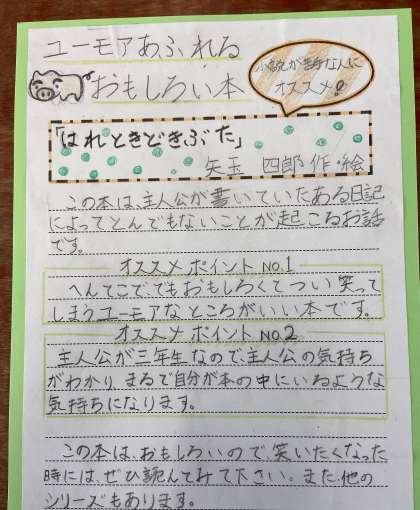 ユーモアあふれる
おもしろい本
小説が苦手な人に
オススメ!
「はれときどきぶた」
矢玉 四郎 作・絵
この本は、主人公が書いていたある日記
によってとんでもないことが起こるお話
です。
オススメポイント NO.1
へんてこで、でもおもしろくてつい笑って
しまうユーモアなところがいい本です。
オススメポイント NO.2
主人公が三年生なので、主人公の気持ち
がわかり、まるで自分が本の中にいるような
気持ちになります。
この本は、おもしろいので、笑いたくなった
時には、ぜひ読んでみて下さい。また、他の
シリーズもあります。